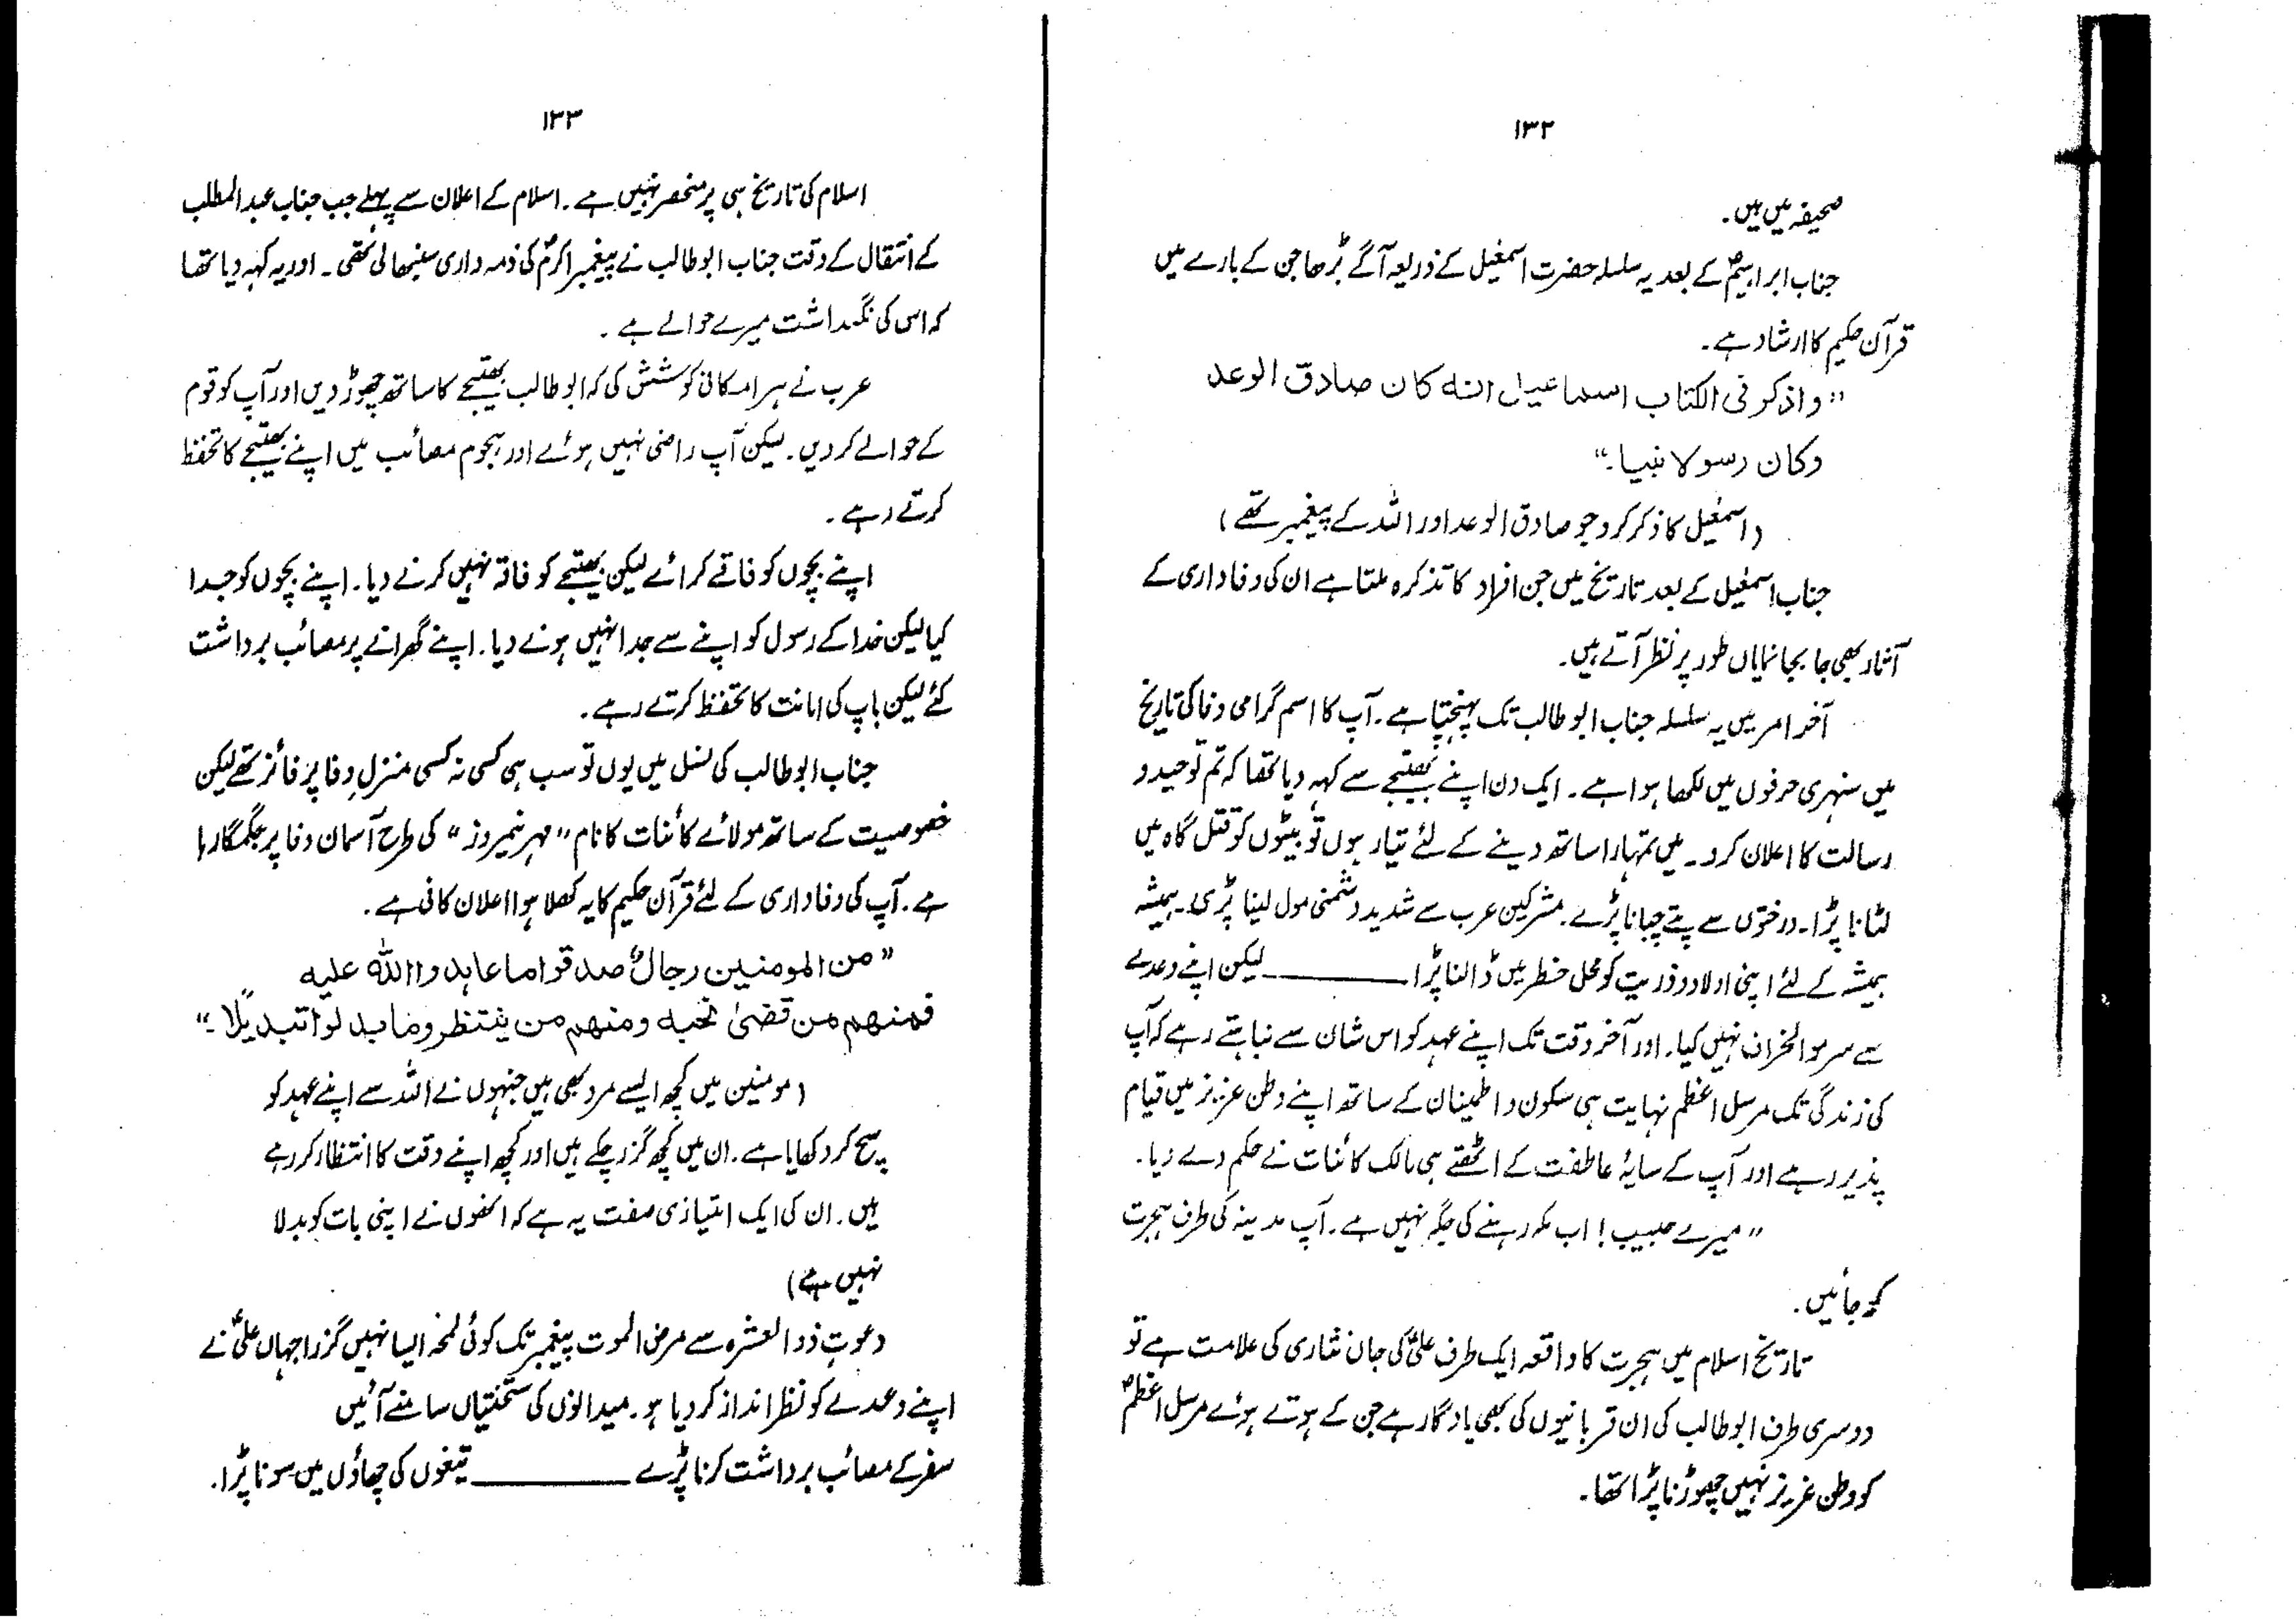 ۱۳۲
صحیفہ میں ہیں۔
جناب ابراہیمؑ کے بعد یہ سلسلہ حضرت اسمٰعیل کے ذریعہ آگے بڑھا جن کے بارے میں
قرآن حکیم کا ارشاد ہے۔
"واذکر فی الکتاب اسماعیل انہ کان صادق الوعد
وکان رسولا نبیا۔"
(اسمٰعیل کا ذکر کرو جو صادق الوعد اور اللہ کے پیغمبر تھے)
جناب اسمٰعیل کے بعد تاریخ میں جن افراد کا تذکرہ ملتا ہے ان کی وفاداری کے
آثار بھی جا بجا نمایاں طور پر نظر آتے ہیں۔
آخر امر میں یہ سلسلہ جناب ابو طالب تک پہنچتا ہے۔ آپ کا اسم گرامی وفا کی تاریخ
میں سنہری حرفوں میں لکھا ہوا ہے۔ ایک دن اپنے بھتیجے سے کہہ دیا تھا کہ تم توحید و
رسالت کا اعلان کرو۔ میں تمہارا ساتھ دینے کے لئے تیار ہوں تو بیٹوں کو قتل گاہ میں
لٹانا پڑا۔ درختوں سے پتے چبانا پڑے۔ مشرکین عرب سے شدید دشمنی مول لینا پڑی۔ ہمیشہ
ہمیشہ کے لئے اپنی اولاد و ذریت کو محل خطر میں ڈالنا پڑا ــــــــ لیکن اپنے وعدے
سے سرمو انحراف نہیں کیا۔ اور آخر وقت تک اپنے عہد کو اس شان سے نباہتے رہے کہ آپ
کی زندگی تک مرسل اعظم نہایت ہی سکون و اطمینان کے ساتھ اپنے وطن عزیز میں قیام
پذیر رہے اور آپ کے سایۂ عاطفت کے اٹھتے ہی مالک کائنات نے حکم دے دیا۔
"میرے حبیب! اب مکہ رہنے کی جگہ نہیں ہے۔ آپ مدینہ کی طرف ہجرت
کر جائیں۔
تاریخ اسلام میں ہجرت کا واقعہ ایک طرف علیؑ کی جان نثاری کی علامت ہے تو
دوسری طرف ابو طالب کی ان قربانیوں کی بھی یادگار ہے جن کے ہوتے ہوئے مرسل اعظمؐ
کو وطن عزیز نہیں چھوڑنا پڑا تھا۔
۱۳۳
اسلام کی تاریخ ہی پر منحصر نہیں ہے۔ اسلام کے اعلان سے پہلے جب جناب عبد المطلب
کے انتقال کے وقت جناب ابو طالب نے پیغمبر اکرمؐ کی ذمہ داری سنبھالی تھی۔ اور یہ کہہ دیا تھا
کہ اس کی نگہداشت میرے حوالے ہے۔
عرب نے ہر امکانی کوشش کی کہ ابو طالب بھتیجے کا ساتھ چھوڑ دیں اور آپ کو قوم
کے حوالے کر دیں۔ لیکن آپ راضی نہیں ہوئے اور ہجوم مصائب میں اپنے بھتیجے کا تحفظ
کرتے رہے۔
اپنے بچوں کو فاقے کرائے لیکن بھتیجے کو فاقہ نہیں کرنے دیا۔ اپنے بچوں کو جدا
کیا لیکن خدا کے رسول کو اپنے سے جدا نہیں ہونے دیا۔ اپنے گھرانے پر مصائب برداشت
کئے لیکن باپ کی امانت کا تحفظ کرتے رہے۔
جناب ابو طالب کی نسل میں یوں تو سب ہی کسی نہ کسی منزلِ وفا پر فائز تھے لیکن
خصوصیت کے ساتھ مولائے کائنات کا نام "مہر نیمروز" کی طرح آسمان وفا پر جگمگا رہا
ہے۔ آپ کی وفاداری کے لئے قرآن حکیم کا یہ کھلا ہوا اعلان کافی ہے۔
"من المومنین رجالٌ صدقوا ما عاہدوا اللہ علیہ
فمنھم من قضیٰ نحبہ ومنھم من ینتظر وما بدلوا تبدیلًا۔"
(مومنین میں کچھ ایسے مرد بھی ہیں جنہوں نے اللہ سے اپنے عہد کو
سچ کر دکھایا ہے۔ ان میں کچھ گزر چکے ہیں اور کچھ اپنے وقت کا انتظار کر رہے
ہیں۔ ان کی ایک امتیازی صفت یہ ہے کہ انھوں نے اپنی بات کو بدلا
نہیں ہے)
دعوتِ ذوالعشیرہ سے مرض الموت پیغمبر تک کوئی لمحہ ایسا نہیں گزرا جہاں علیؑ نے
اپنے وعدے کو نظر انداز کر دیا ہو۔ میدانوں کی سختیاں سامنے آئیں
سفر کے مصائب برداشت کرنا پڑے ــــــــ تیغوں کی چھاؤں میں سونا پڑا۔